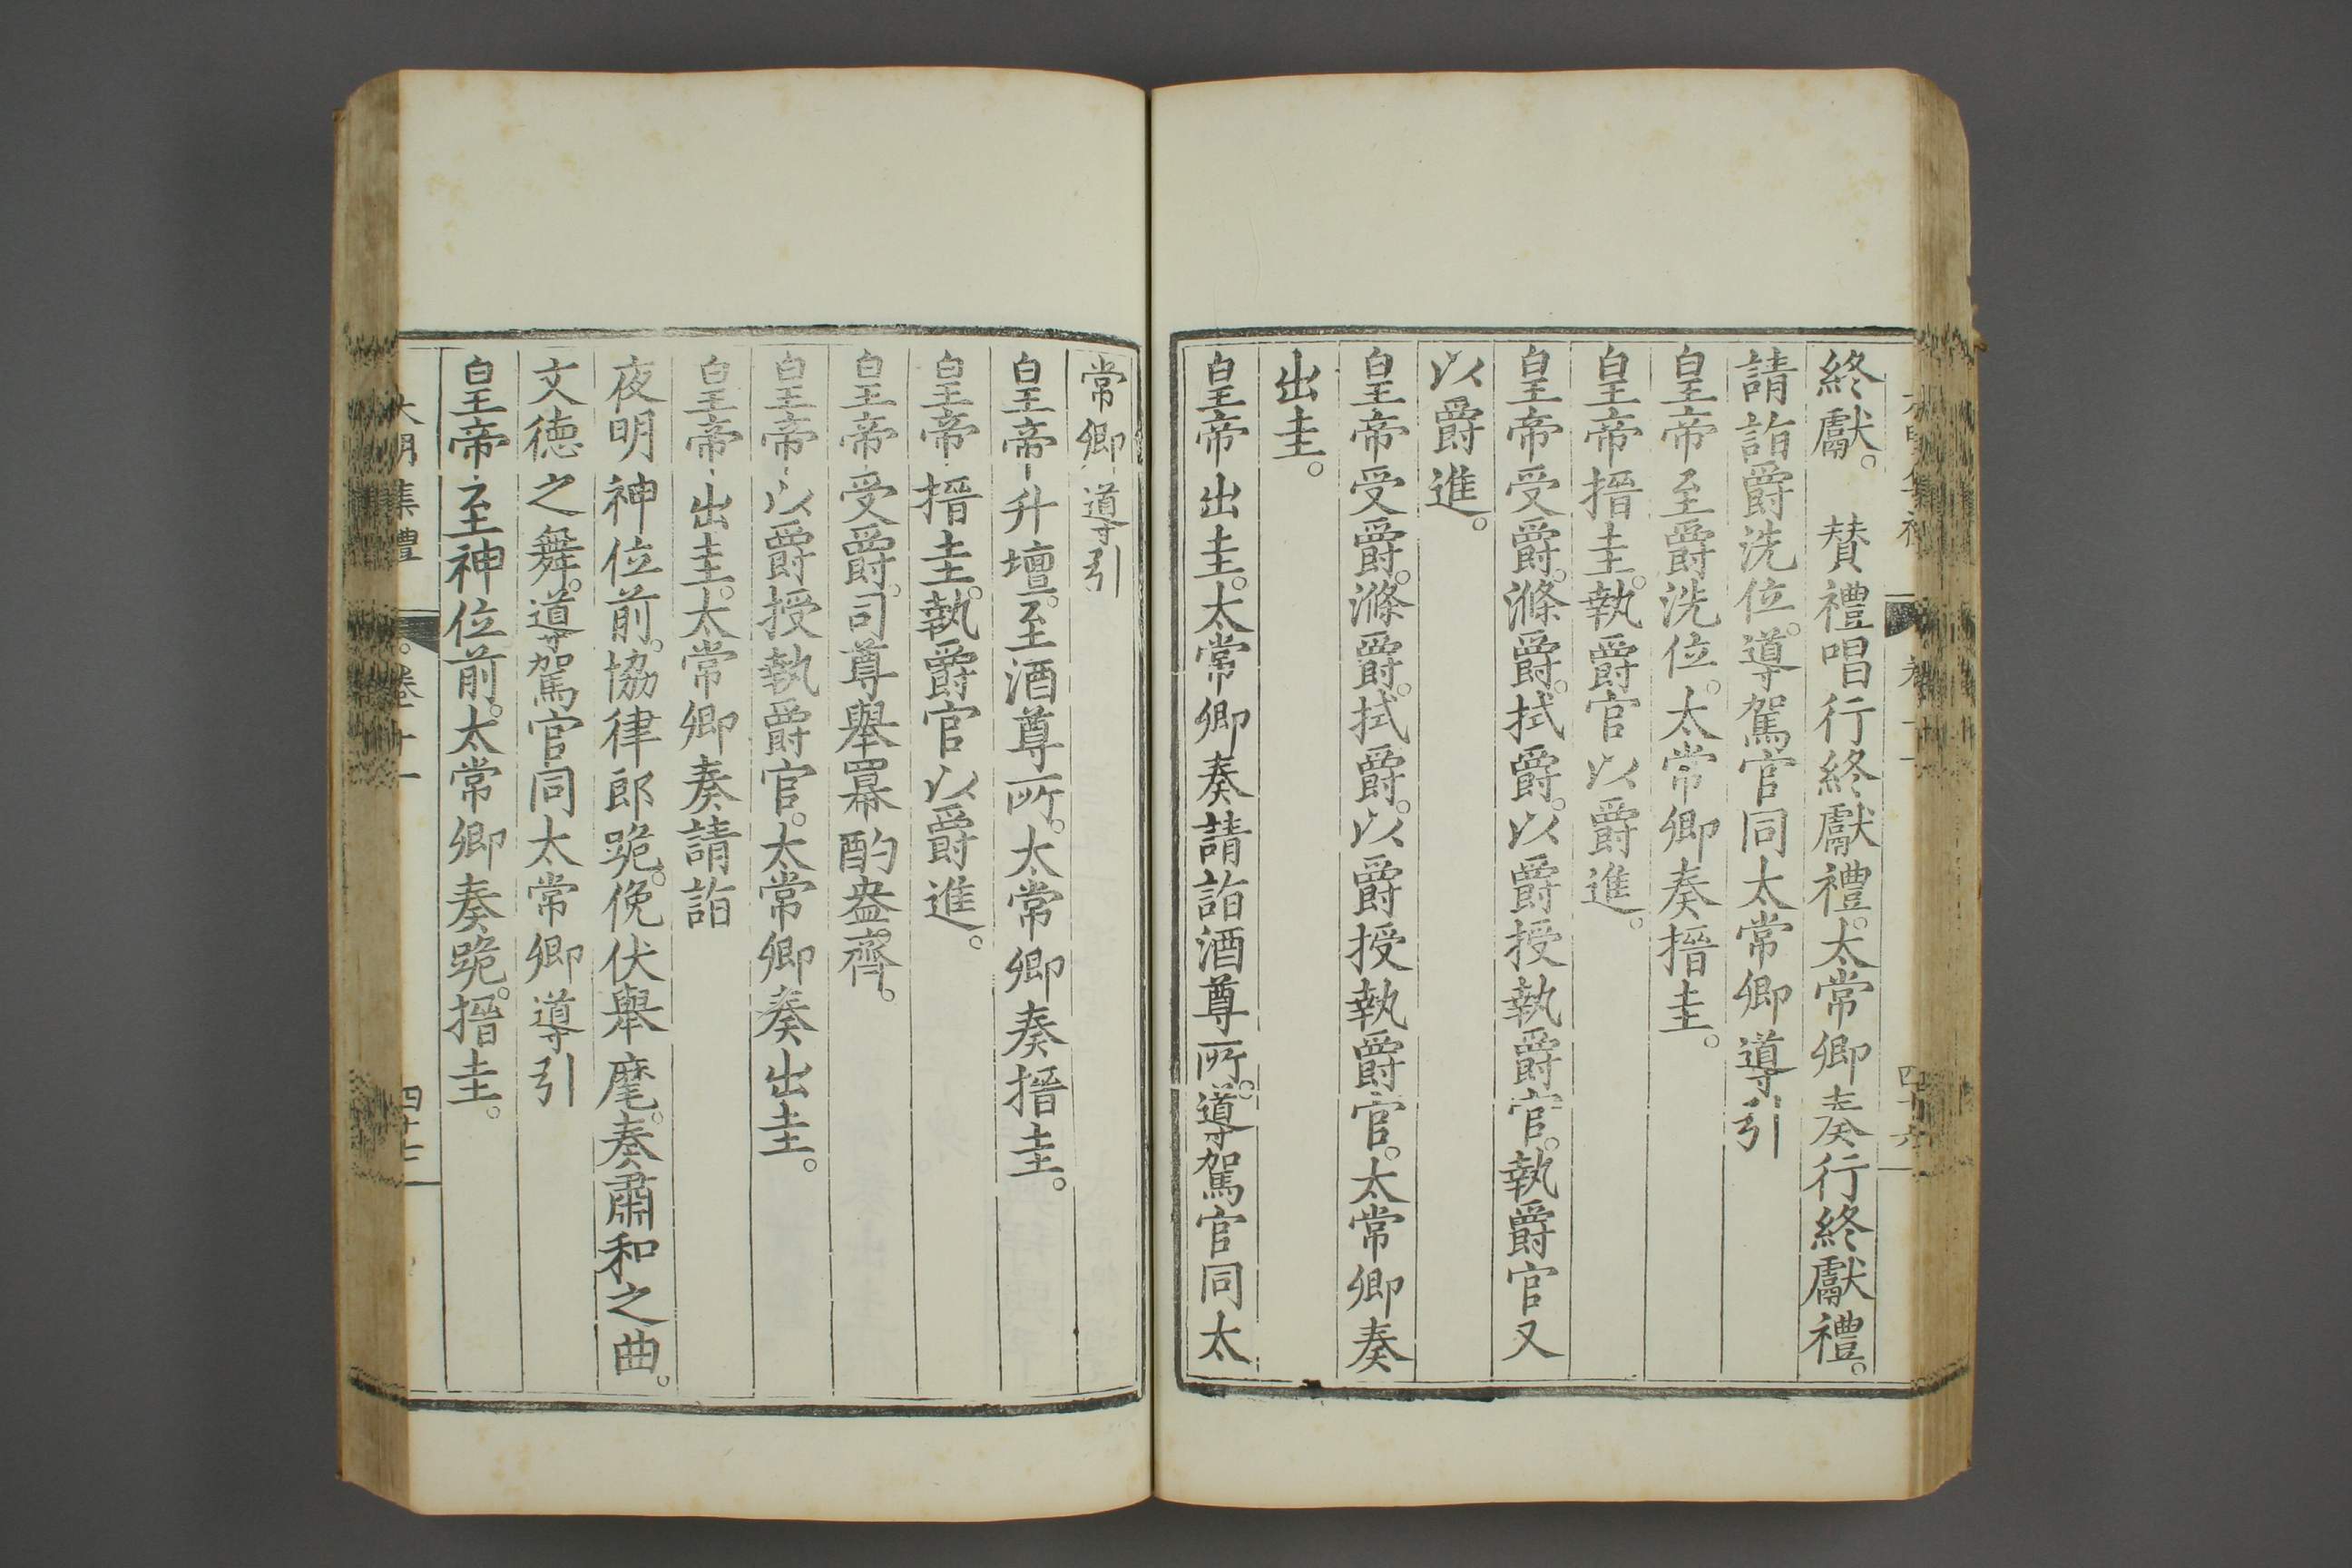 終獻。　賛禮唱行終獻禮。太常卿奏行終獻禮。
請詣爵洗位。導駕官同太常卿導引
皇帝至爵洗位。太常卿奏搢圭。
皇帝搢圭。執爵官以爵進。
皇帝受爵。滌爵。拭爵。以爵授執爵官。執爵官又
以爵進。
皇帝受爵。滌爵。拭爵。以爵授執爵官。太常卿奏
出圭。
皇帝出圭。太常卿奏請詣酒尊所。導駕官同太
常卿導引
皇帝升壇。至酒尊所。太常卿奏搢圭。
皇帝搢圭。執爵官以爵進。
皇帝受爵。司尊舉羃酌盎齊。
皇帝以爵授執爵官。太常卿奏出圭。
皇帝出圭。太常卿奏請詣
夜明神位前。協律郎跪。俛伏舉麾。奏肅和之曲。
文德之舞。導駕官同太常卿導引
皇帝至神位前。太常卿奏跪。搢圭。
大明集禮　卷十一　四十七